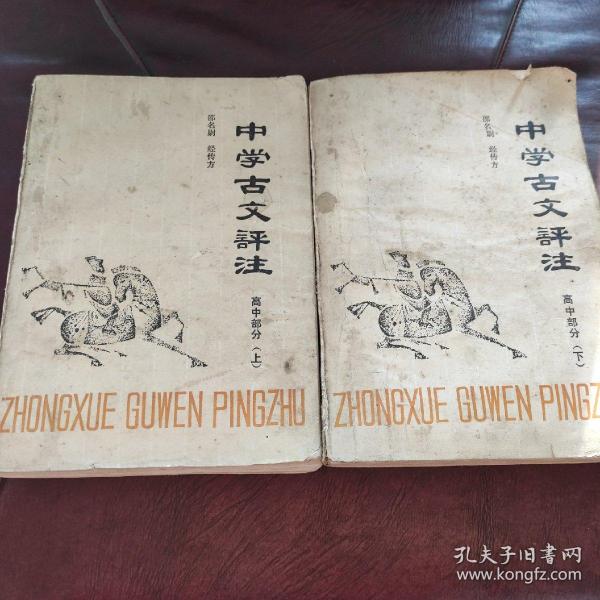 中学古文評注
邵名尉 经传方
高中部分（上）
ZHONGXUE GUWEN PINGZHU
中学古文評注
邵名尉 经传方
高中部分（下）
ZHONGXUE GUWEN PINGZ
孔夫子旧書网
www.kongfz.com